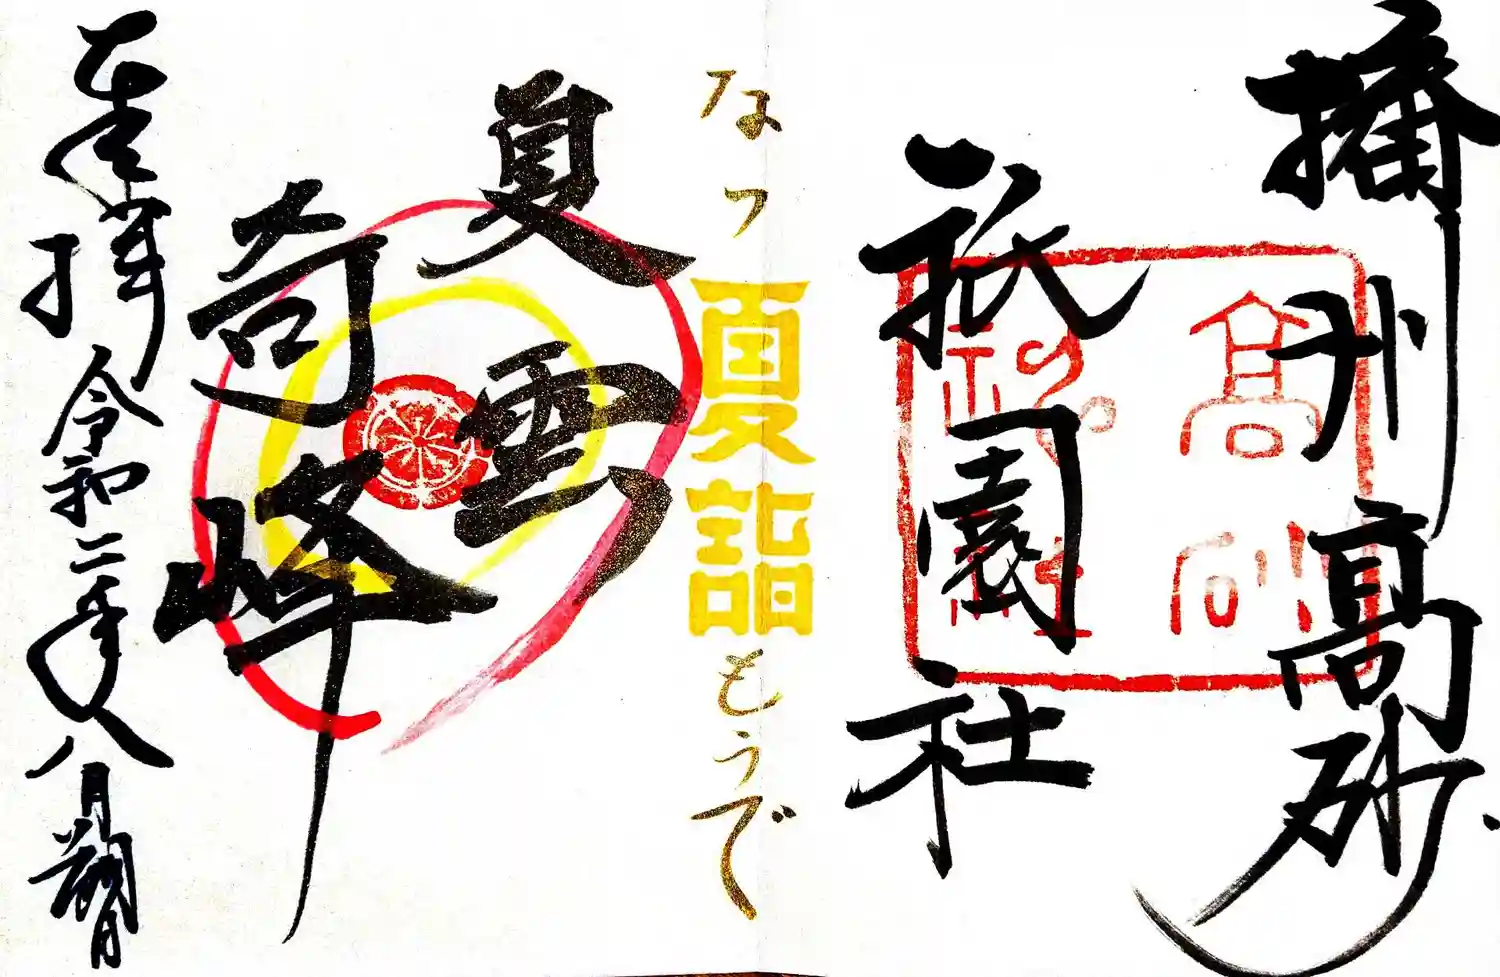 播州高砂
祇園社
高砂
祇園社
なつ夏詣もうで
夏雲
奇峰
奉拝 令和二年八月朔日